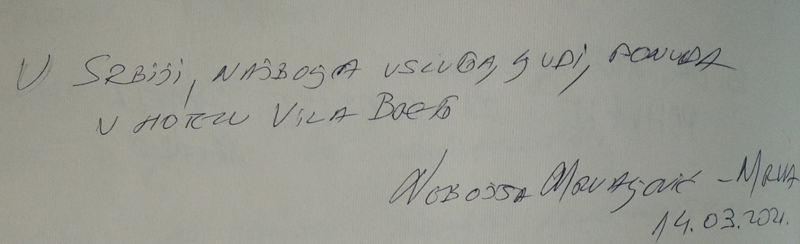 U SRBIJI, NAJBOLJA USLUGA, LJUDI, PONUDA
U HOTELU VILA
NEBOJŠA – MRVA
14.03.2021.